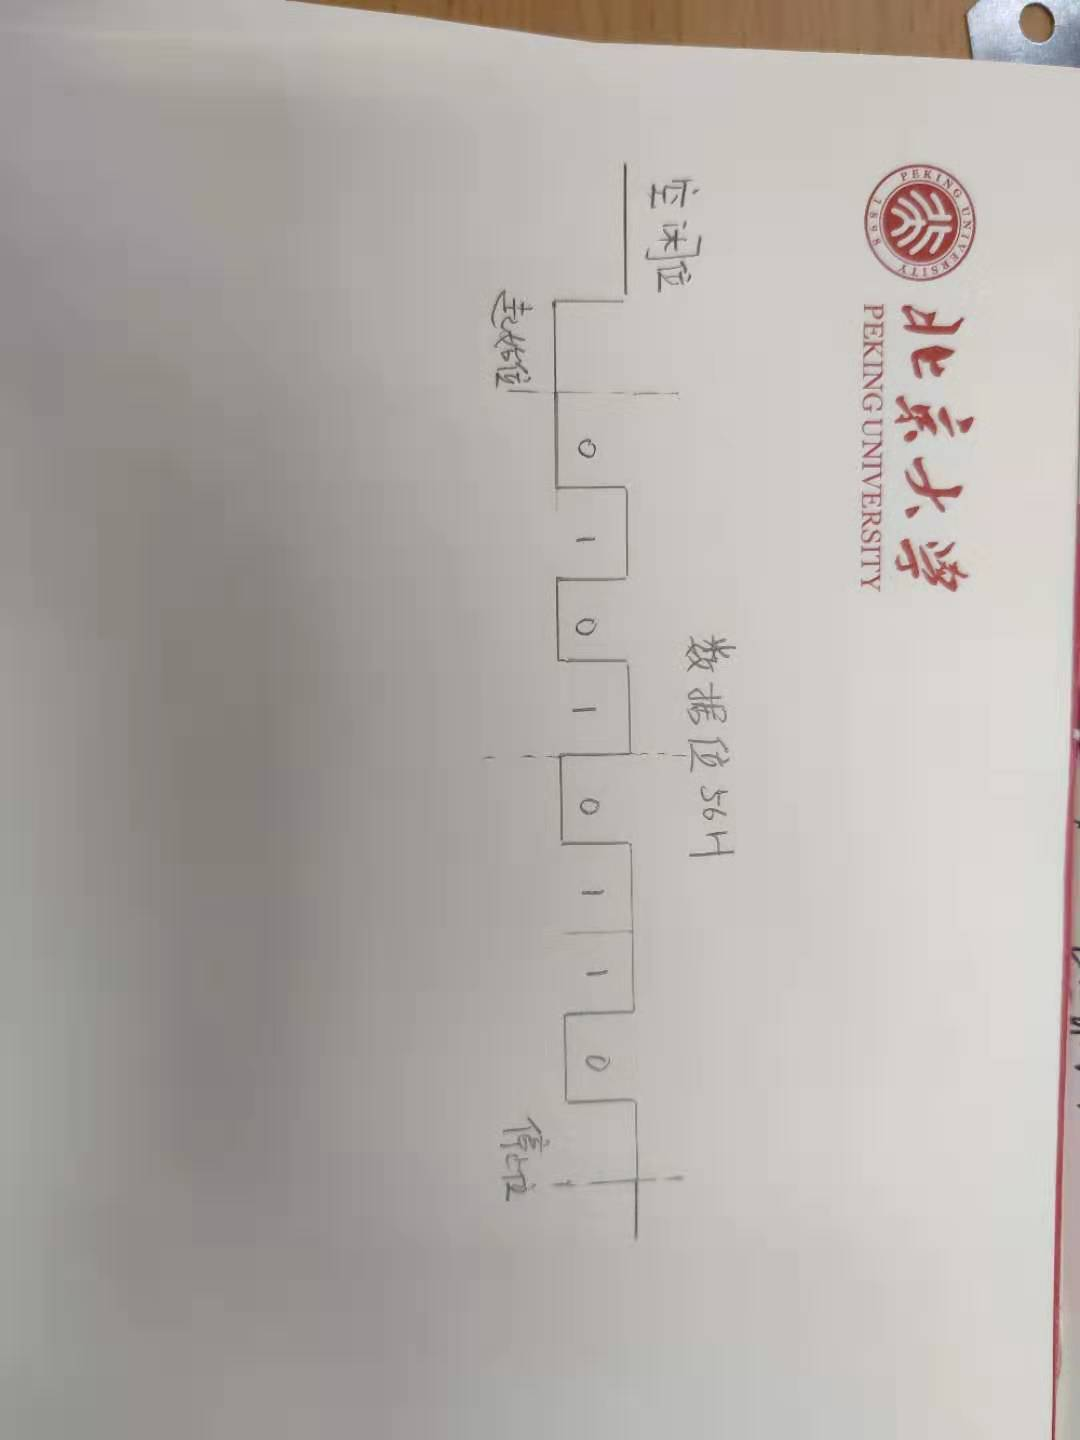 PEKING UNIVERSITY 1898
北京大学
PEKING UNIVERSITY
空闲位
数据位 56H
0 1 0 1 0 1 1 0
起始位
停止位